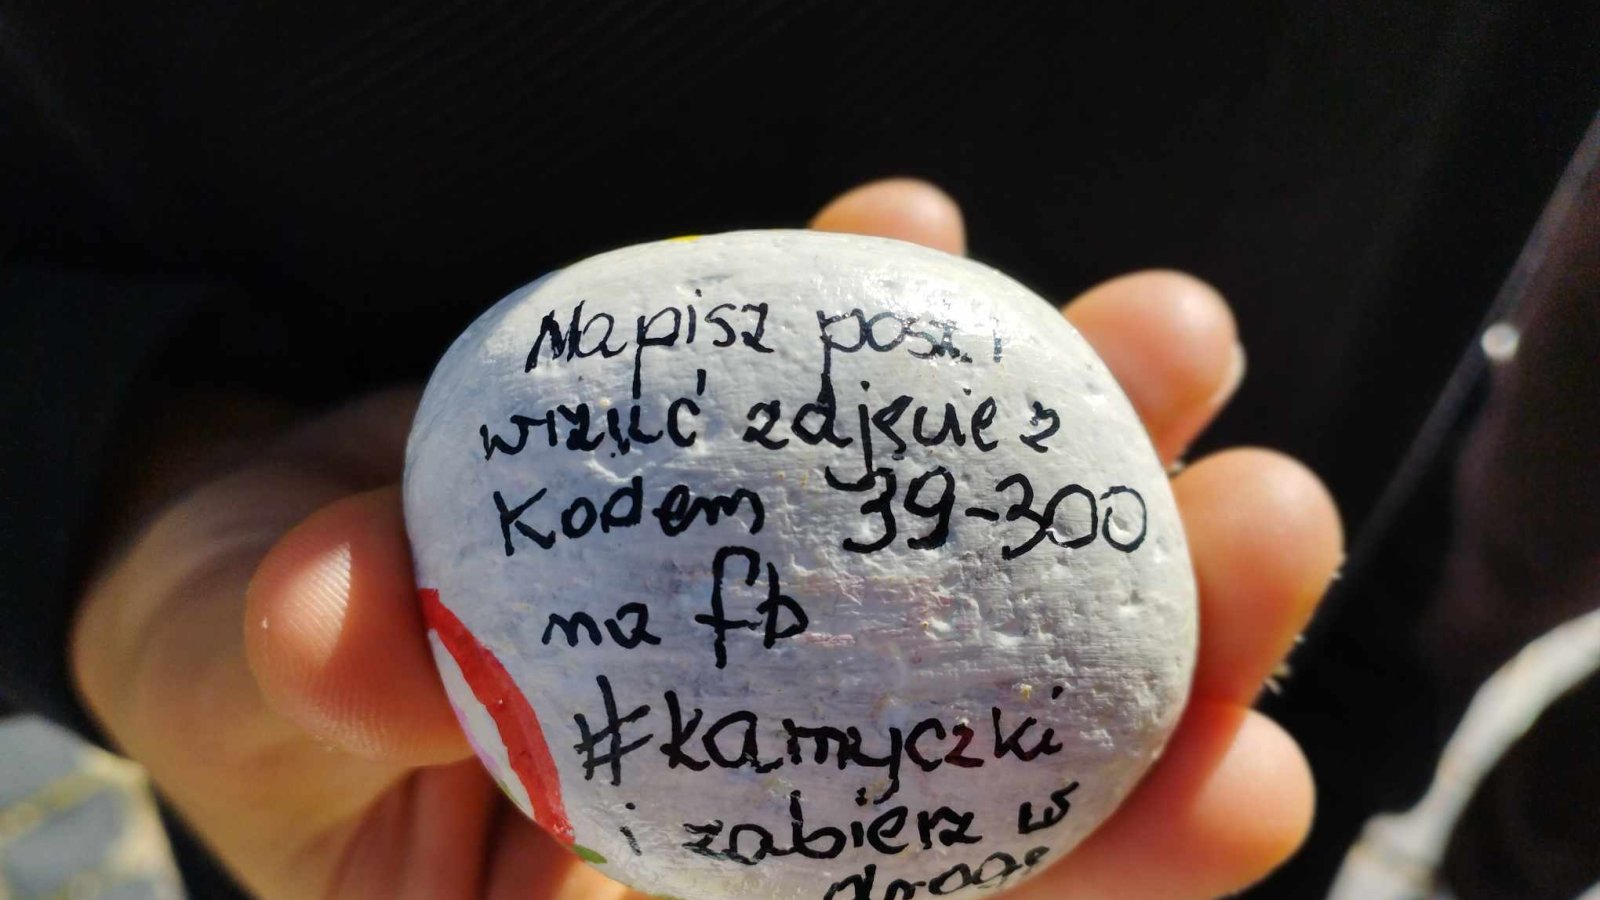 Napisz post i
wrzuć zdjęcie z
kodem 39-300
na fb
#kamyczki
i zabierz w
drogę